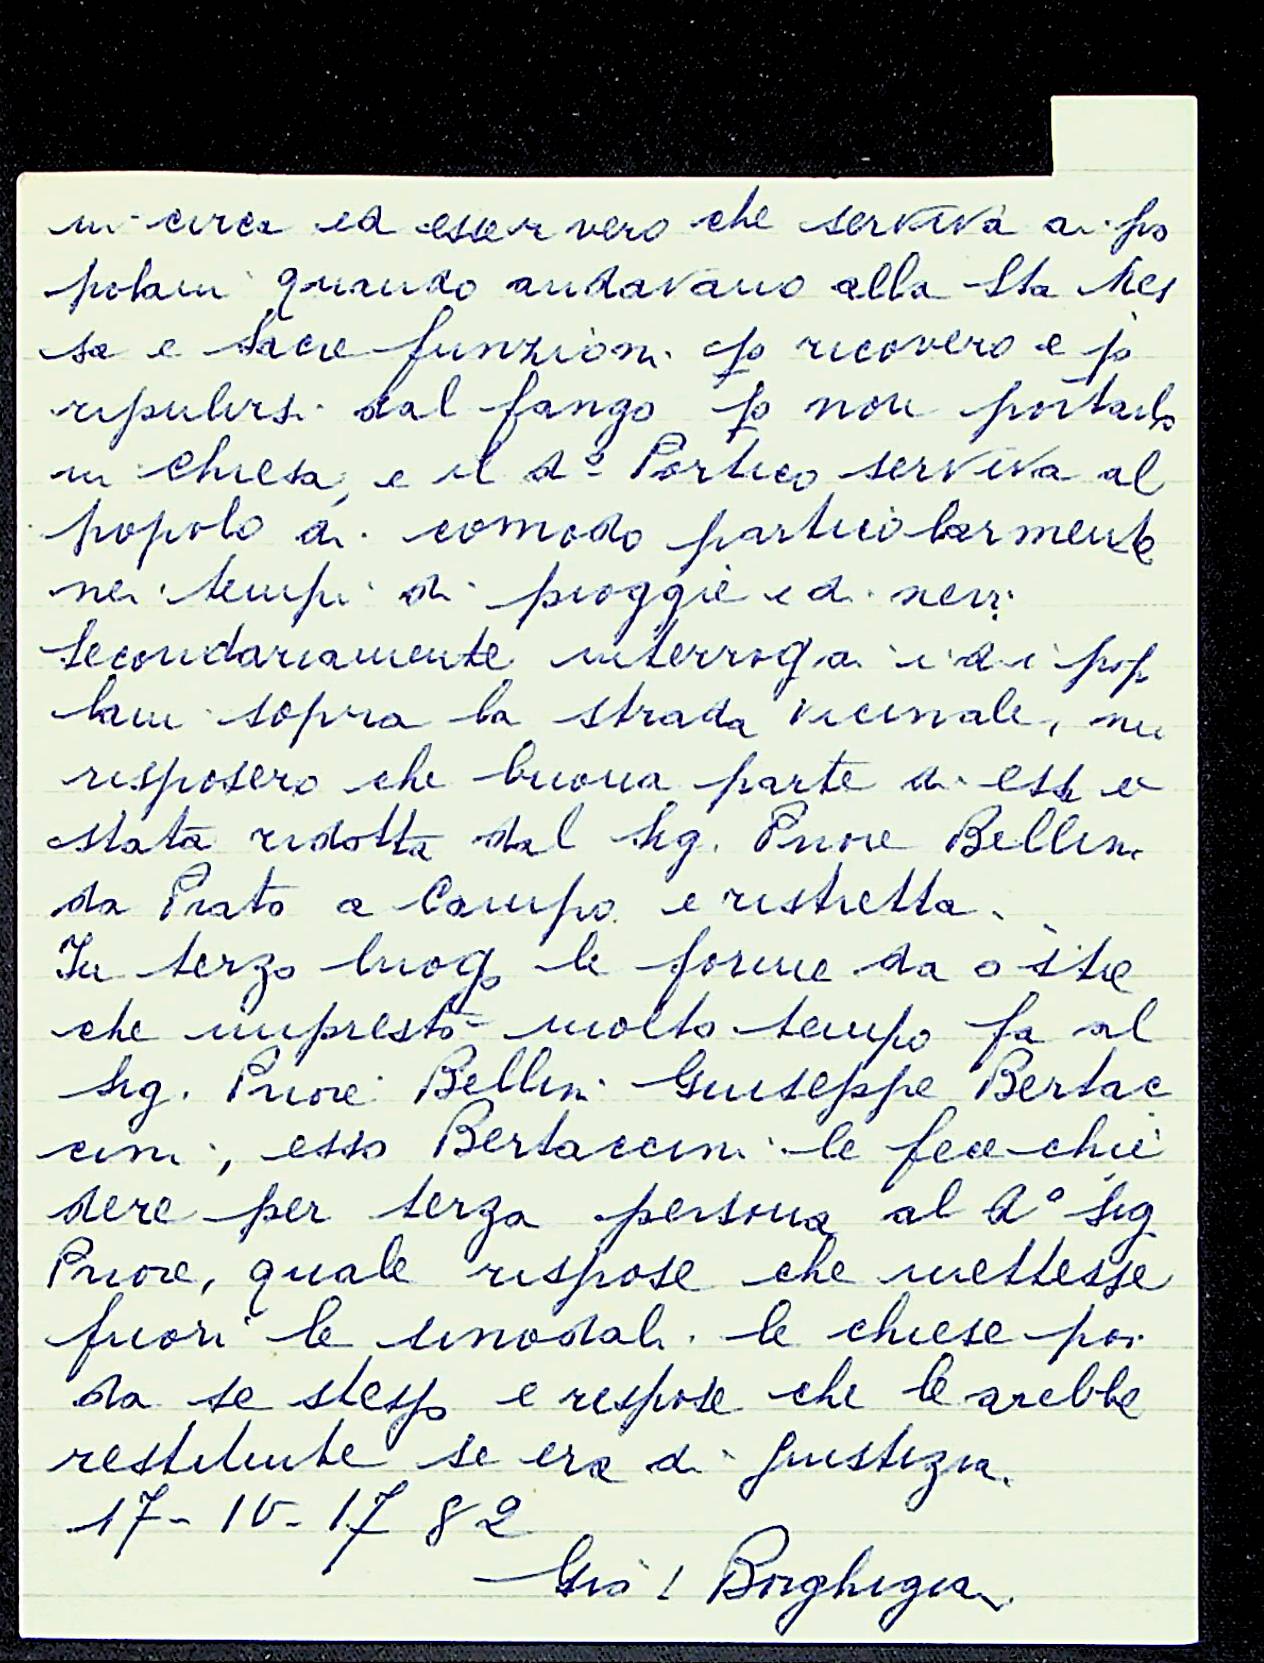 in circa ed esser vero che serviva ai po
polani quando andavano alla Sta Mes
sa e Sacre funzioni p ricovero e p
ripulirsi dal fango p non portarlo
in Chiesa, e il do Portico serviva al
popolo di comodo particolarmente
nei tempi di pioggie e di nevi
Secondariamente interrogai i di pop
lani sopra la strada vicinale, mi
risposero che buona parte di essi e
stata ridotta dal Sig. Priore Bellini
da Prato a Campo e ristretta.
In terzo luogo le forme da ostie
che imprestò molto tempo fa al
Sig. Priore Bellini Giuseppe Bertac
cini, esso Bertaccini le fece chie
dere per terza persona al do Sig
Priore, quale rispose che mettesse
fuori le sinodali. le chiese poi
da se stesso e rispose che le arebbe
restituite se era di giustizia.
17-10-1782
Gio Borghigiani